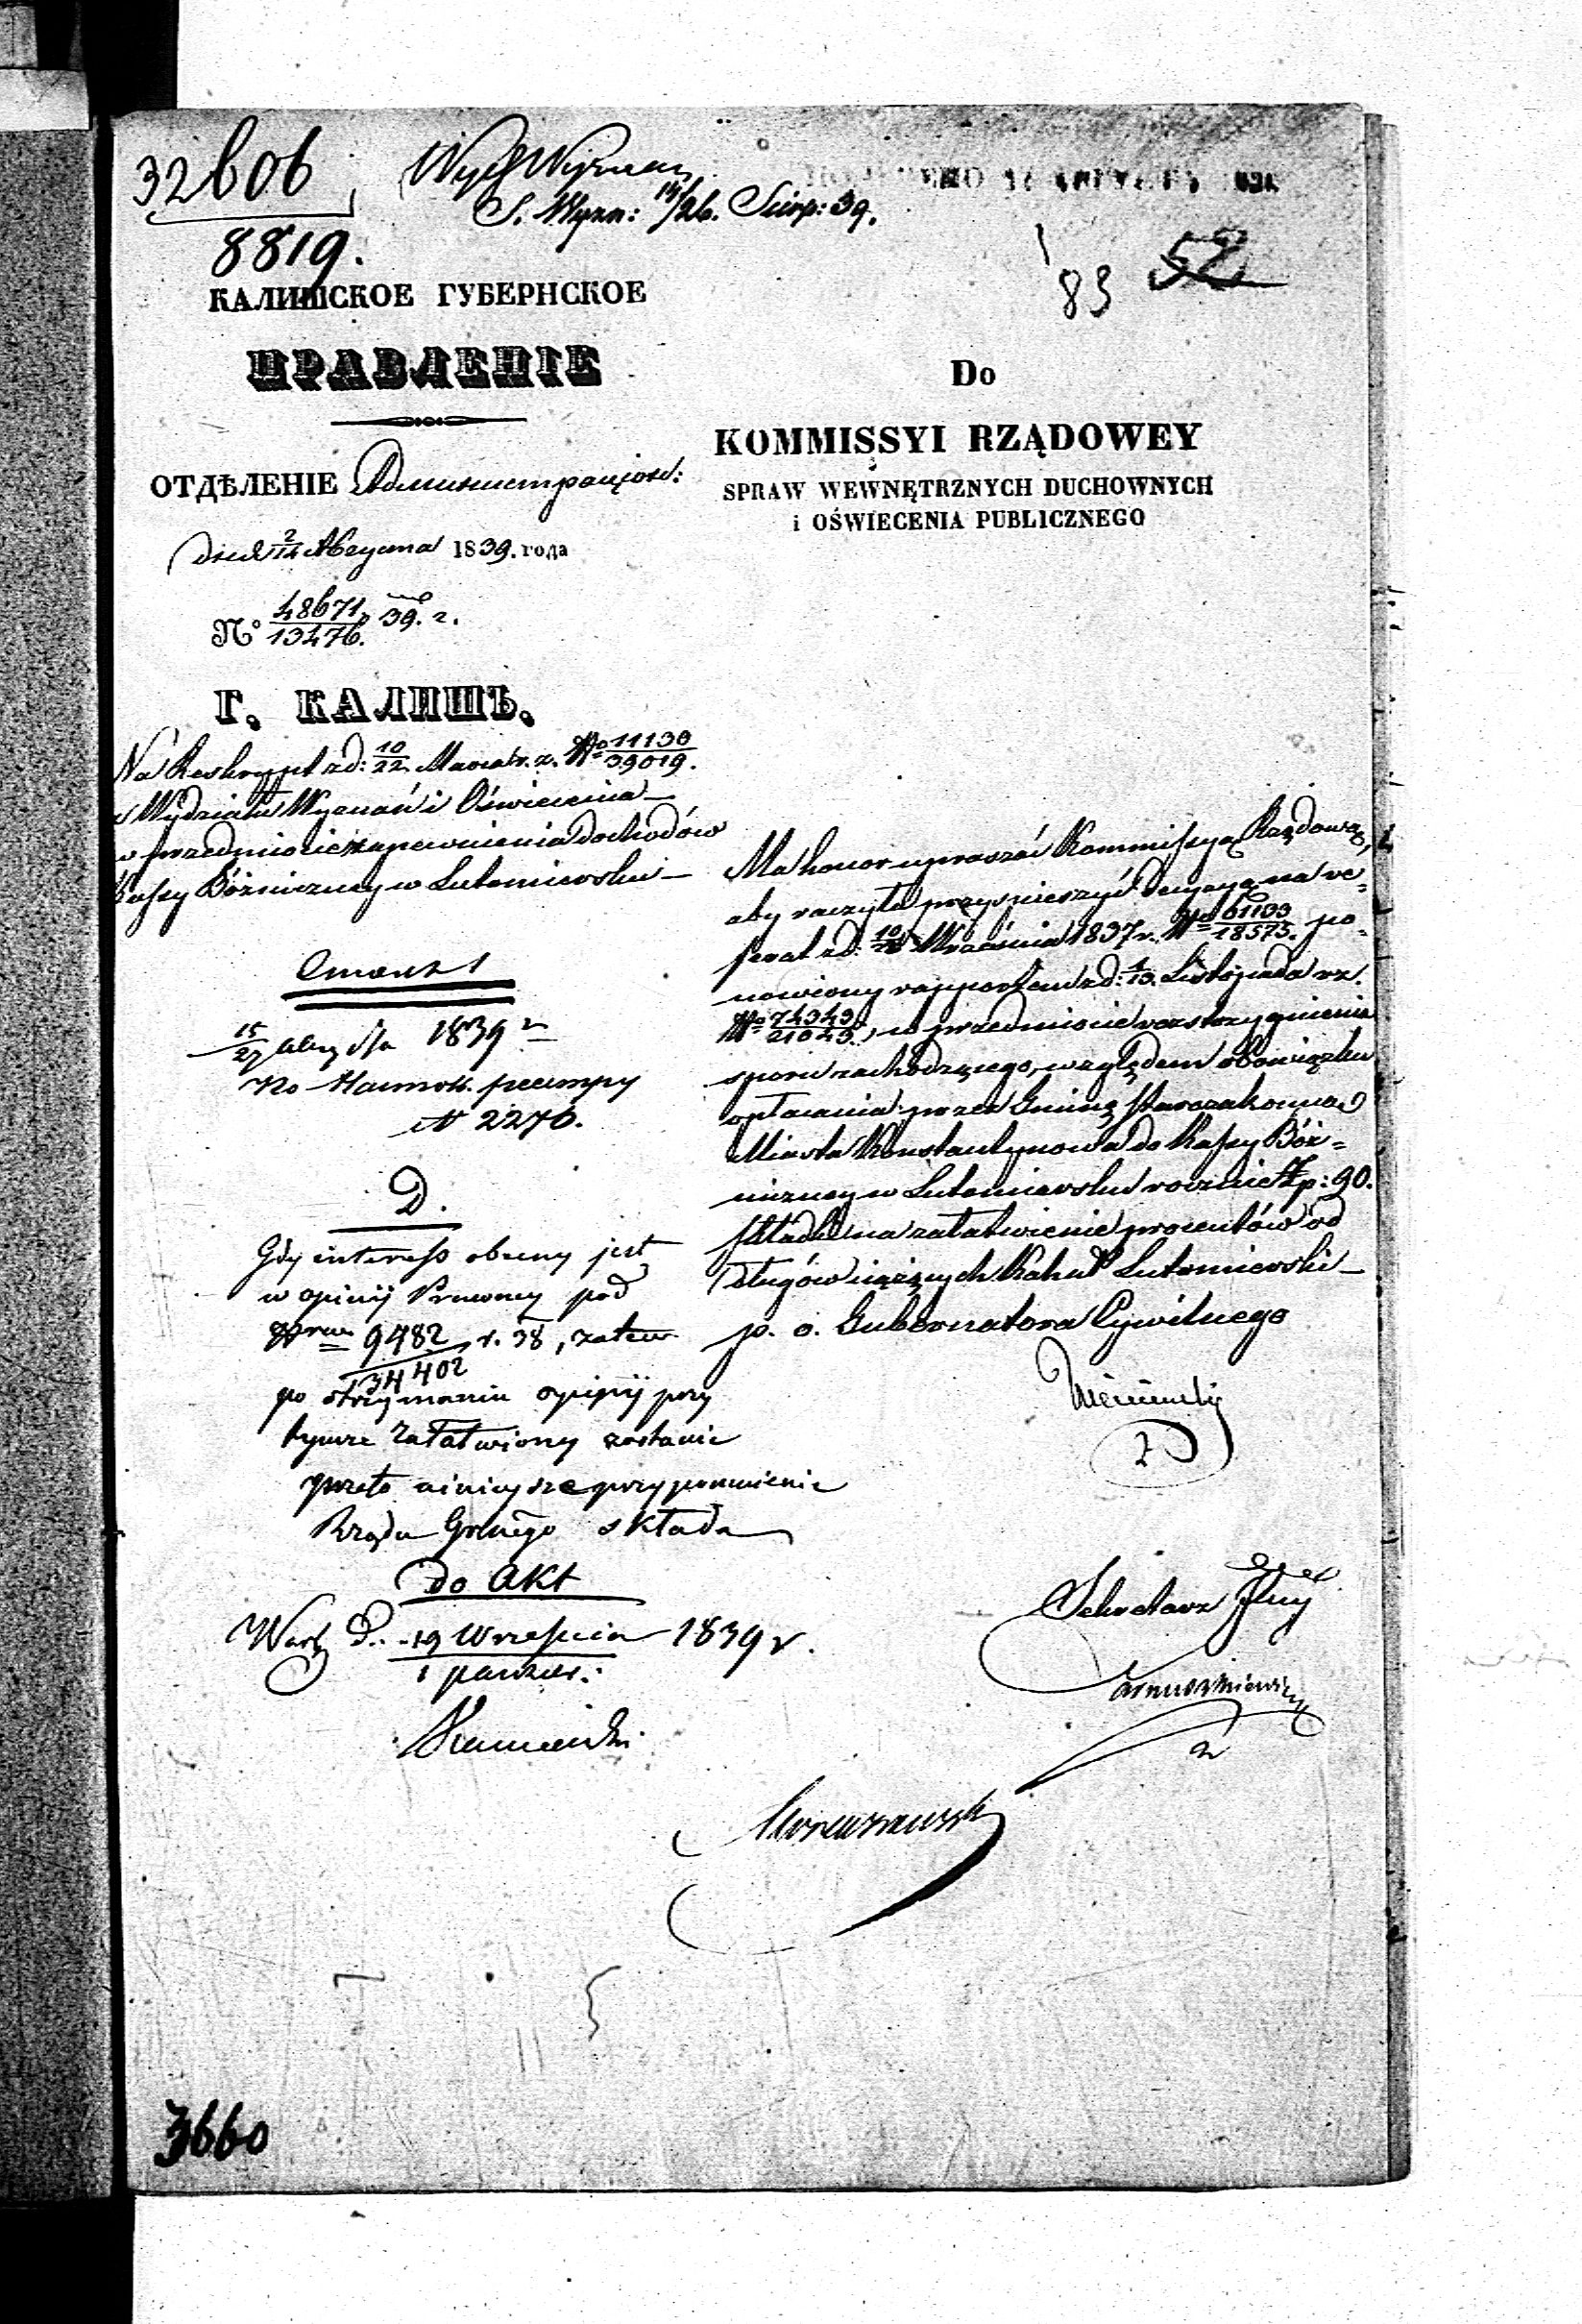 32606
8819.
Wyd Wyznań
S. Wyzn: 14/26. Sierp: 39.
83 52
КАЛИШСКОЕ ГУБЕРНСКОЕ
ПРАВЛЕНІЕ
ОТДѢЛЕНІЕ Администраціон:
Дня 2/14 Августа 1839. года
№ 48671/13476. 39. г.
Г. КАЛИШЪ.
Na Reskrypt z d: 10/22 Marca r. z. No 11130/39019.
z Wydziału Wyznań i Oświecenia
w przedmiocie zapewnienia dochodów
Kassy Bóżniczney w Lutomiersku
15/27 1839
По
N 2276.
D.
Gdy interess obecny jest
w opinij Prawney pod
Nrem 9482/34402 r. 38, zatem
po otrzymaniu opinij przy
tymże załatwiony zostanie
przeto niniejsze przypomnienie
Rządu Gubnego składa
Do Akt
Warsz D. 19 Września 1839 r.
1 Paździer.:
Do
KOMMISSYI RZĄDOWEY
SPRAW WEWNĘTRZNYCH DUCHOWNYCH
i OŚWIECENIA PUBLICZNEGO
Ma honor upraszać Kommissyą Rządową,
aby raczyła przyspieszyć decyzyą na re=
ferat z d: Września 1837 r. No 61133/18575. po=
nowiony rapportem z d: 1/13. Listopada rz.
No 74343/21043., w przedmiocie rozstrzygnienia
sporu zachodzącego, względem obowiązku
opłacania przez Gminę Starozakonną
Miasta Konstantynowa do Kassy Bóż=
niczney w Lutomiersku rocznie Złp: 90.
składki na załatwienie procentów od
długów ciążących Kahał Lutomierski
p. o. Gubernatora Cywilnego
Sekretarz Jlny
3660